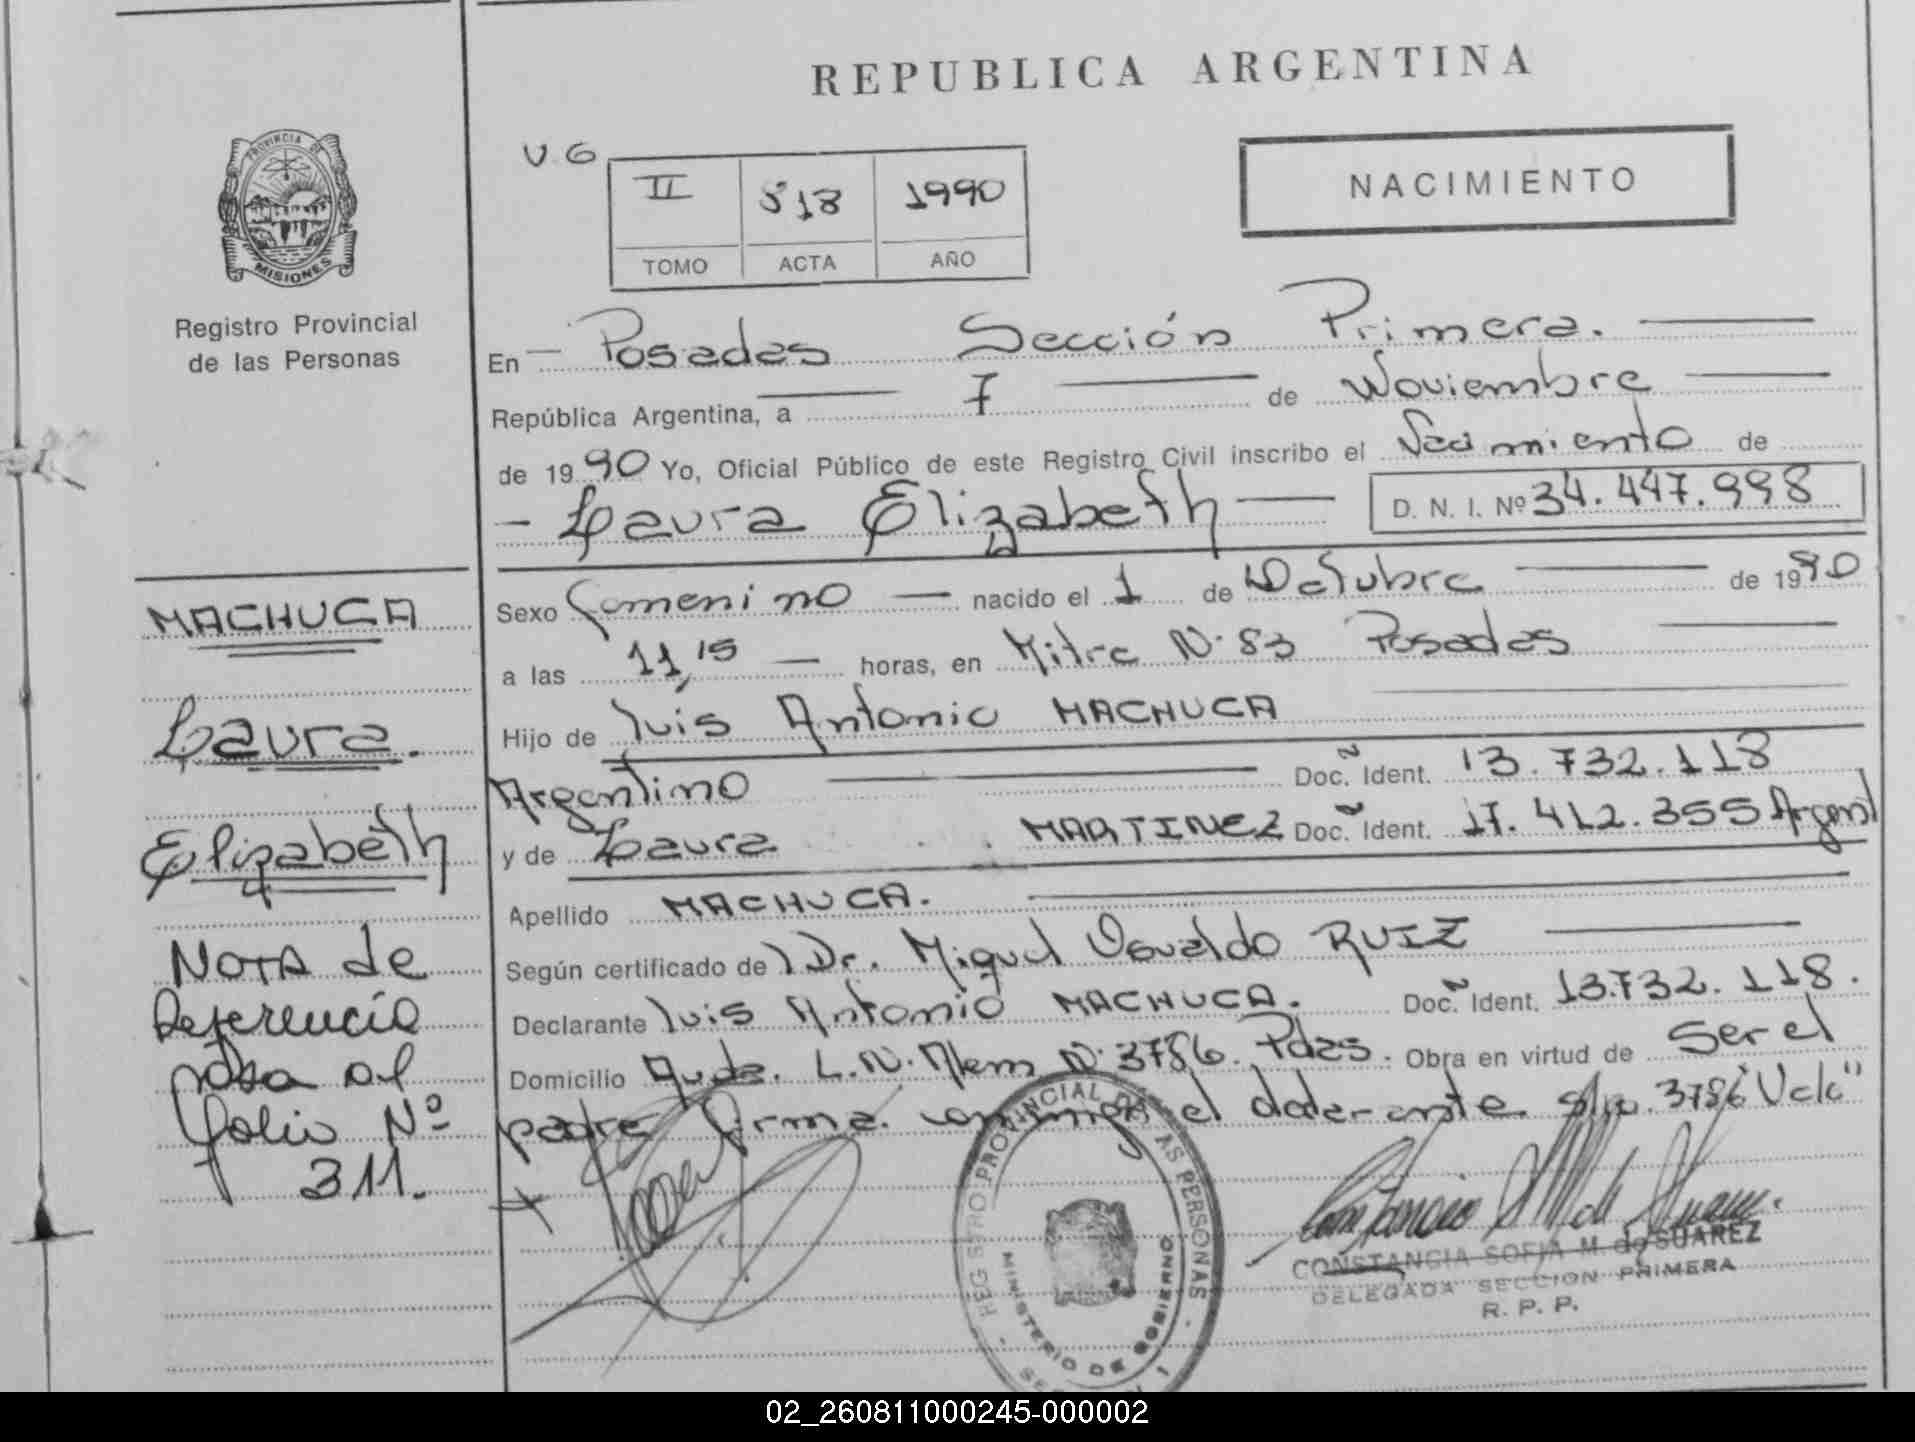 REPUBLICA ARGENTINA
PROVINCIA DE
MISIONES
Registro Provincial
de las Personas
V. G
II 518 1990
TOMO ACTA AÑO
NACIMIENTO
En Posadas Sección Primera.
República Argentina, a 7 de Noviembre
de 1990 Yo, Oficial Público de este Registro Civil inscribo el Nacimiento de
Laura Elizabeth D. N. I. Nº 34.447.998
Sexo Femenino nacido el 1 de Octubre de 1990
a las 11,15 horas, en Mitre N° 83 Posadas
Hijo de Luis Antonio MACHUCA
Argentino Doc. Ident. 13.732.118
y de Laura MARTINEZ Doc. Ident. 17.412.355 Argent
Apellido MACHUCA.
Según certificado de Dr. Miguel Osvaldo RUIZ
Declarante Luis Antonio MACHUCA. Doc. Ident. 13.732.118.
Domicilio Avda. L.N. Alem N° 3786. Pdas. Obra en virtud de Ser el
padre firma conmigo el declarante s/r. 3786 "Vale"
MACHUCA
Laura.
Elizabeth
NOTA de
Referencia
pasa al
folio Nº
311.
REGISTRO PROVINCIAL DE LAS PERSONAS
MINISTERIO DE GOBIERNO
CONSTANCIA SOFIA M. de SUAREZ
DELEGADA SECCION PRIMERA
R. P. P.
02_260811000245-000002